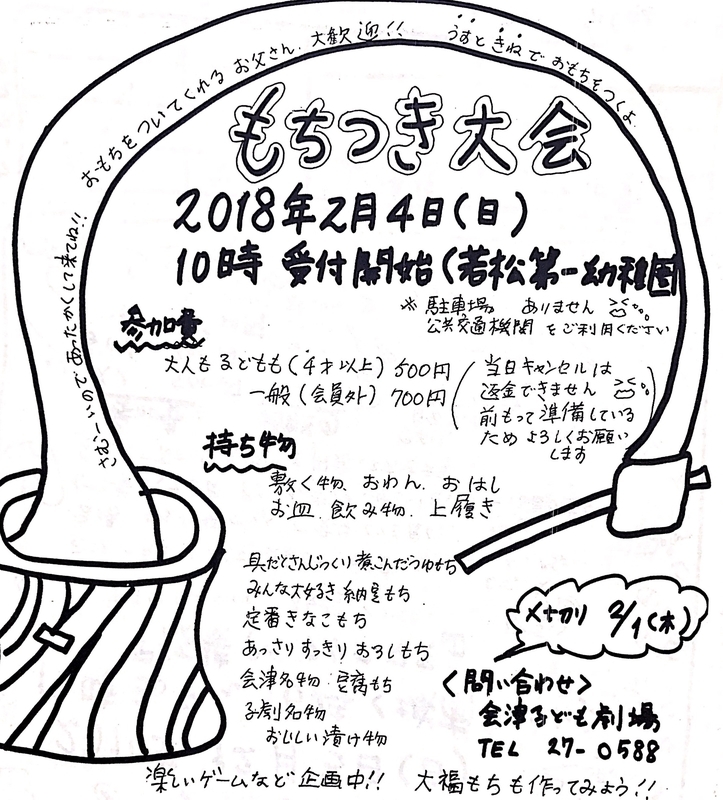 さむーいのであったかくして来てね!!
おもちをついてくれる お父さん、大歓迎!!
うすときねで おもちをつくよ。
もちつき大会
2018年2月4日(日)
10時 受付開始(若松第一幼稚園
※ 駐車場 ありません
公共交通機関 をご利用ください
参加費
大人も子どもも(4才以上) 500円
一般(会員外) 700円
当日キャンセルは
返金できません
前もって準備している
ため よろしくお願い
します
持ち物
敷く物、おわん、おはし
お皿、飲み物、上履き
具だくさんじっくり煮こんだつゆもち
みんな大好き 納豆もち
定番きなこもち
あっさりすっきり おろしもち
会津名物 豆腐もち
子劇名物
おいしい漬け物
〆切り 2/1(木)
<問い合わせ>
会津子ども劇場
TEL 27-0588
楽しいゲームなど企画中!! 大福もちも作ってみよう!!